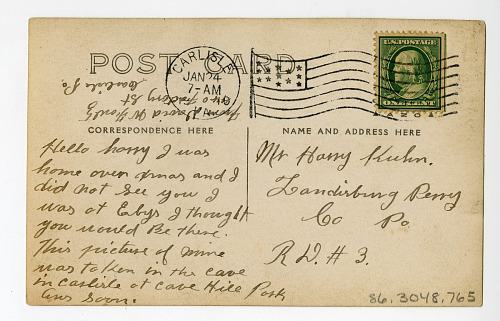 POST CARD
CARLISLE
JAN 24
7-AM
PA.
U.S. POSTAGE
ONE CENT
Carlisle Pa.
St
David
CORRESPONDENCE HERE
NAME AND ADDRESS HERE
Hello harry I was
home over xmas and I
did not see you I
was at Ebys I thought
you would Be there.
This picture of mine
was taken in the cave
in carlisle at cave Hill Park
Ans soon.
Mr Harry Kuhn.
Landisburg Perry
Co Pa
R.D. # 3.
86.3048.765